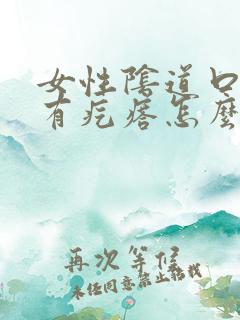 女性陰道口
有疙瘩怎麼
再次等候
未任同意禁止轉載